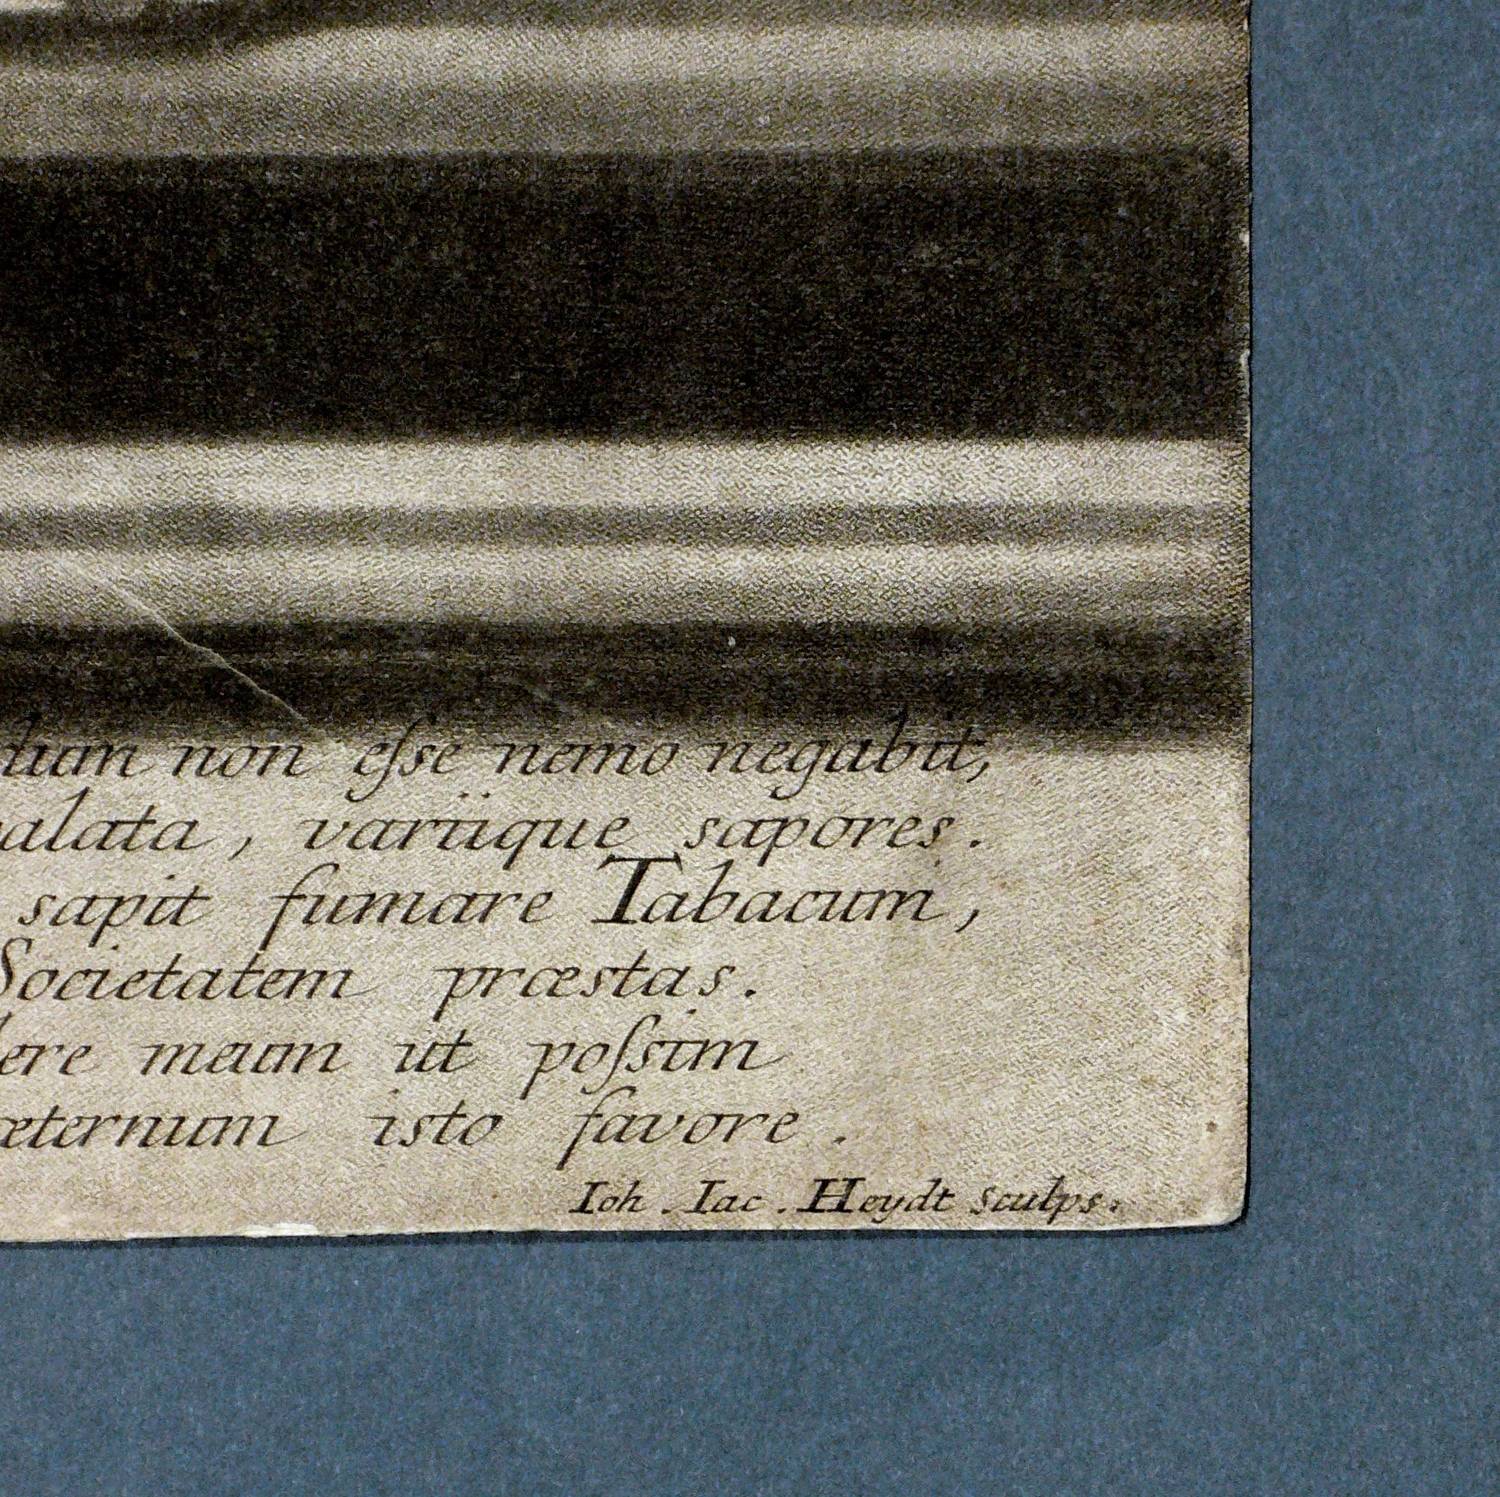 dum non eſse nemo negabit,
alata, variique sapores.
sapit fumare Tabacum,
Societatem præstas.
ere meum ut poſsim
æternum isto favore.
Ioh. Iac. Heydt sculps.